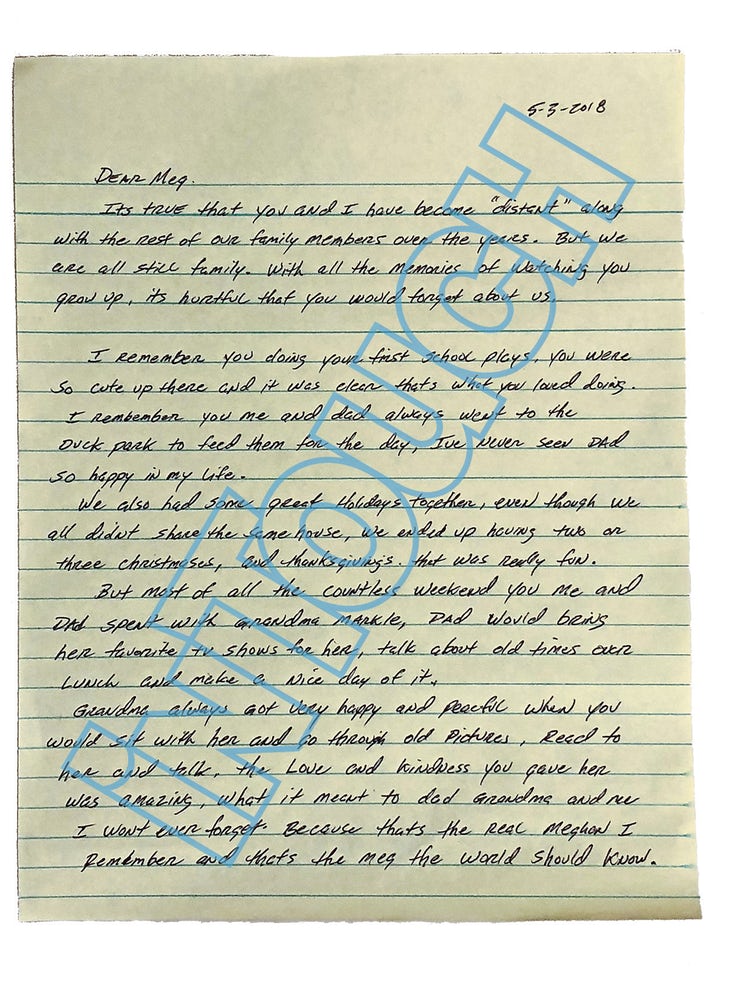 5-3-2018
Dear Meg.
Its true that you and I have become "distant" along
with the rest of our family members over the years. But we
are all still family. With all the memories of watching you
grow up, its hurtful that you would forget about us.
I remember you doing your first school plays, you were
so cute up there and it was clear thats what you loved doing.
I remember you me and dad always went to the
Duck park to feed them for the day, Ive never seen Dad
so happy in my life.
We also had some great Holidays together, even though we
all didnt share the same house, we ended up having two or
three christmases, and thanksgivings. that was really fun.
But most of all the countless weekend you me and
Dad spent with Grandma Markle, Dad would bring
her favorite tv shows for her, talk about old times over
Lunch and make a nice day of it,
Grandma always got very happy and peacful when you
would sit with her and go through old Pictures, Read to
her and talk, the Love and kindness you gave her
was amazing, what it meant to dad Grandma and me
I wont ever forget. Because thats the real Meghan I
Remember and thats the meg the world should know.
INTOUCH